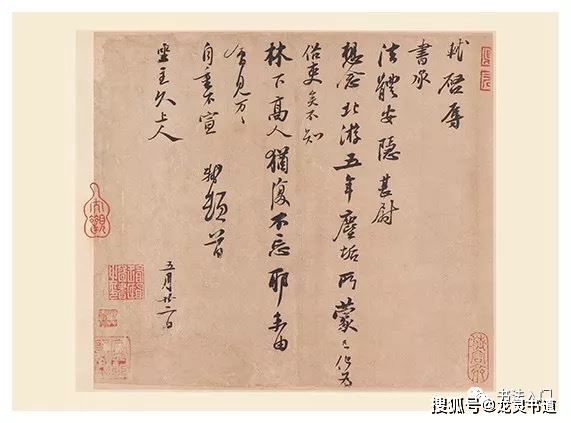 軾啓辱
書承
法體安隱甚尉
想念北游五年塵垢所蒙已化為
俗吏矣不知
林下高人猶復不忘耶未由
會見万〻
自重不宣 軾頓首
坐主久上人
五月廿二日
书法入门
搜狐号@龙灵书道